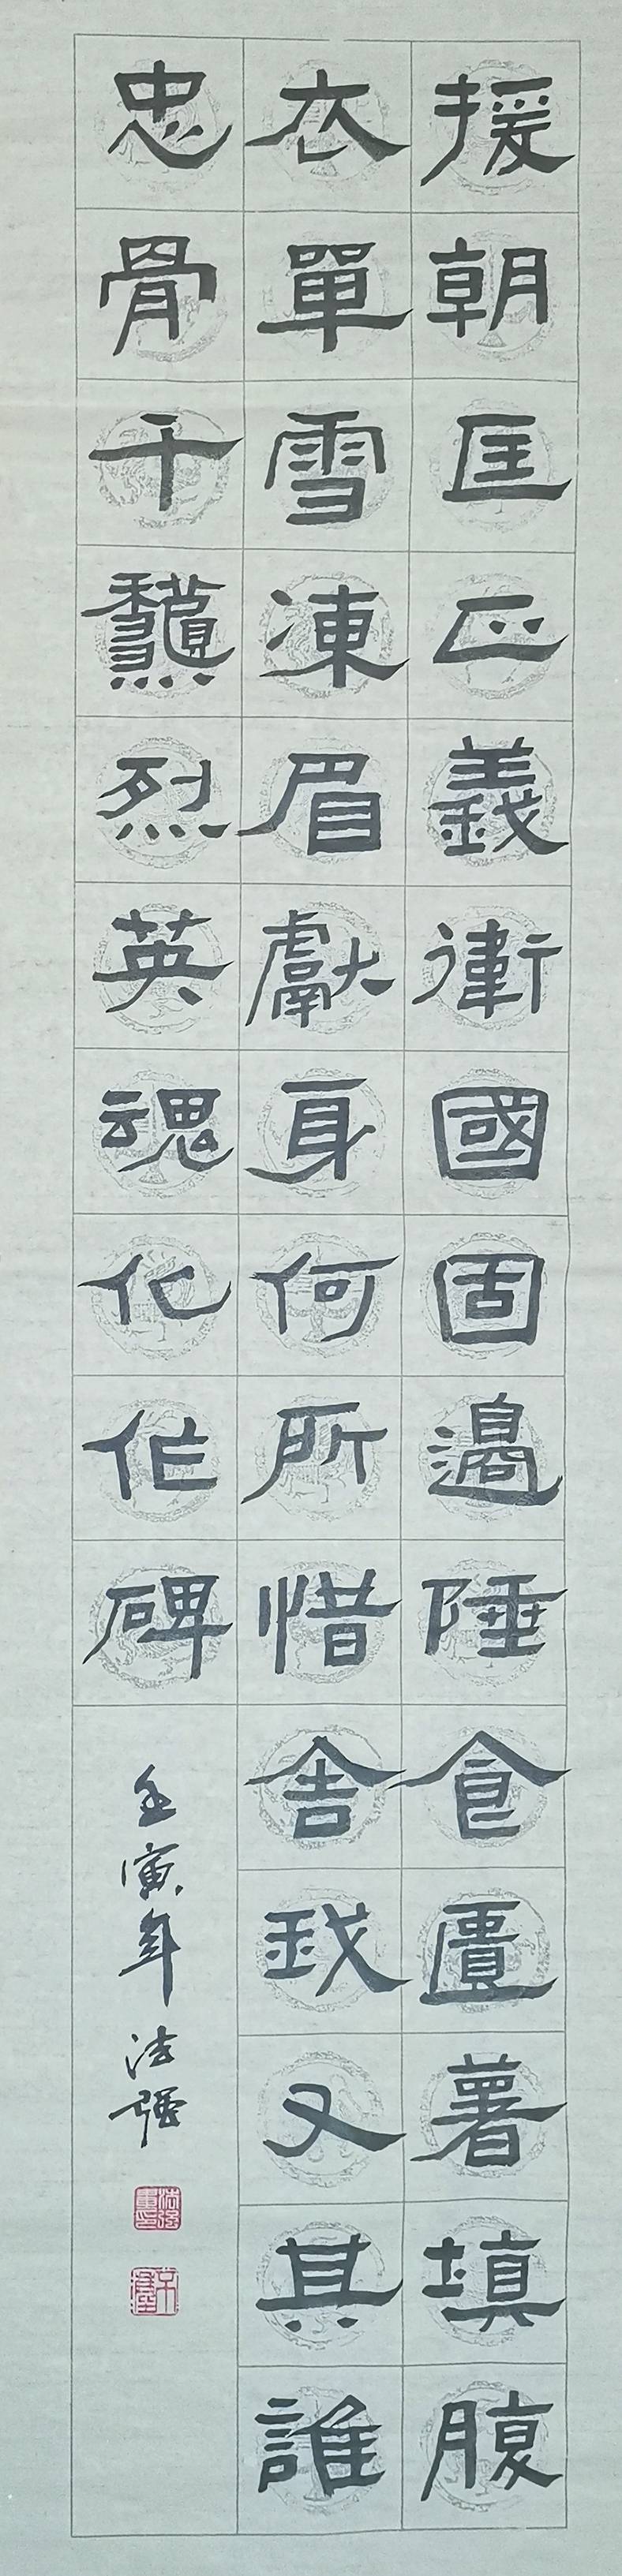 援朝匡正義衛國固邊陲食匱薯填腹
衣單雪凍眉獻身何所惜舍我又其誰
忠骨千𩡋烈英魂化作碑
壬寅年法强